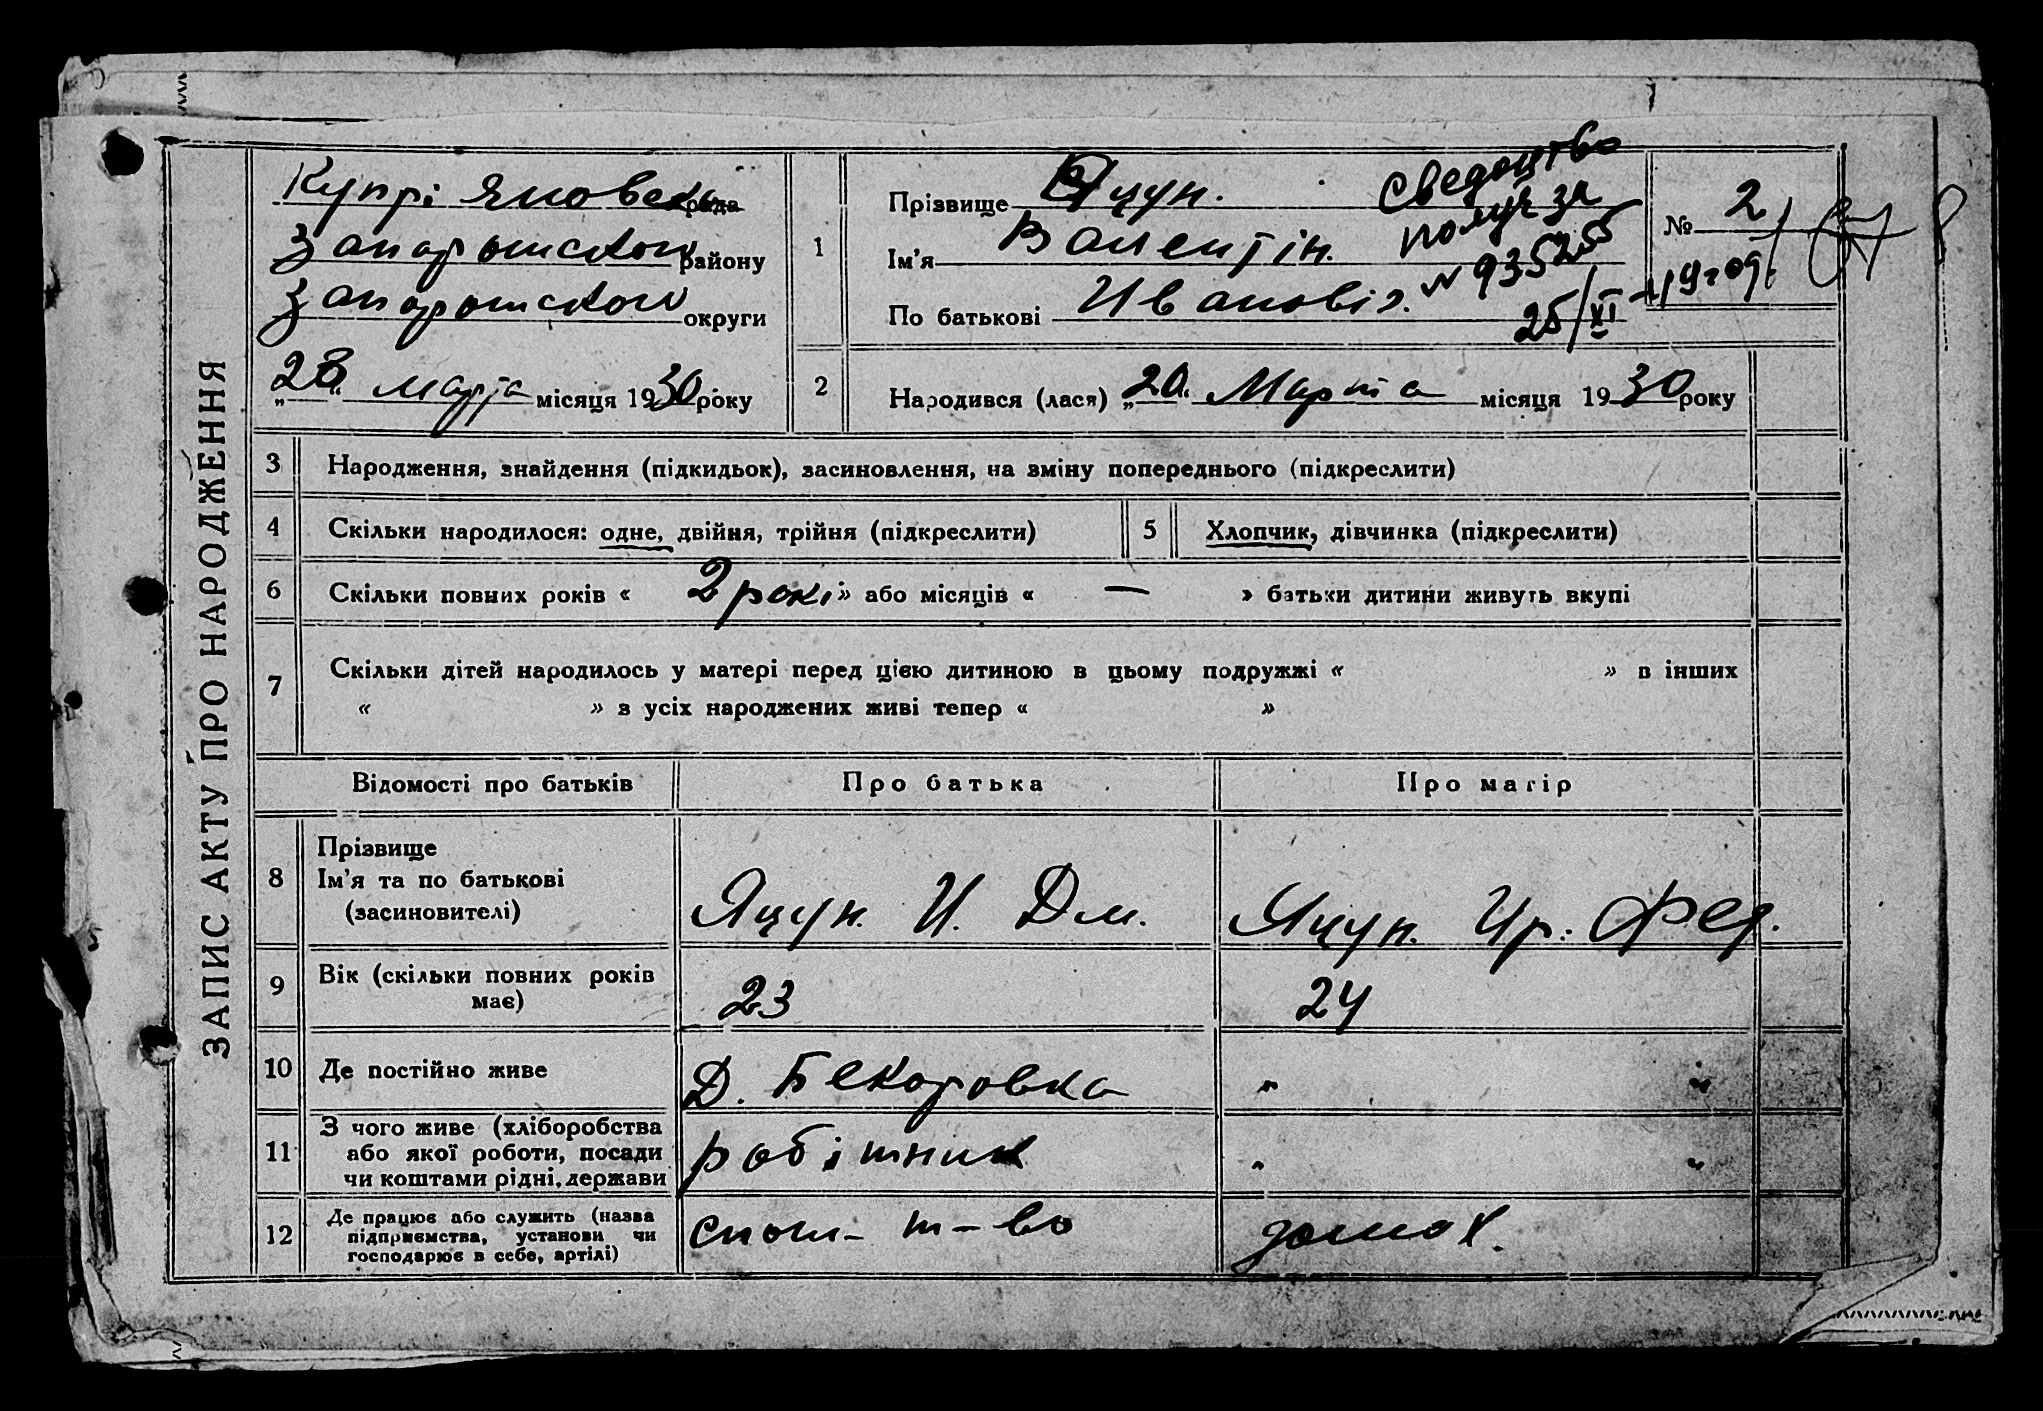 ЗАПИС АКТУ ПРО НАРОДЖЕННЯ
Купріяновська рада
району
округи
„28“ марта місяця 1930 року
1
Прізвище Яцун.
Ім'я Валентін.
По батькові Ивановіч.
Сведоцтво
№ 935255
25/XI
№ 2
2
Народився (лася) „20“ Марта місяця 1930 року
3 Народження, знайдення (підкидьок), засиновлення, на зміну попереднього (підкреслити)
4 Скільки народилося: одне, двійня, трійня (підкреслити)
5 Хлопчик, дівчинка (підкреслити)
6 Скільки повних років « 2 рокі » або місяців « — » батьки дитини живуть вкупі
7 Скільки дітей народилось у матері перед цією дитиною в цьому подружжі « » в інших
« » з усіх народжених живі тепер « »
Відомості про батьків Про батька Про матір
8 Прізвище
Ім'я та по батькові
(засиновителі)
Яцун. И. Дм. Яцун. Ир. Фед.
9 Вік (скільки повних років
має)
23 24
10 Де постійно живе Д. Бекаровка " "
11 З чого живе (хліборобства
або якої роботи, посади
чи коштами рідні, держави
робітник " "
12 Де працює або служить (назва
підприємства, установи чи
господарює в себе, артілі)
т-во домох.